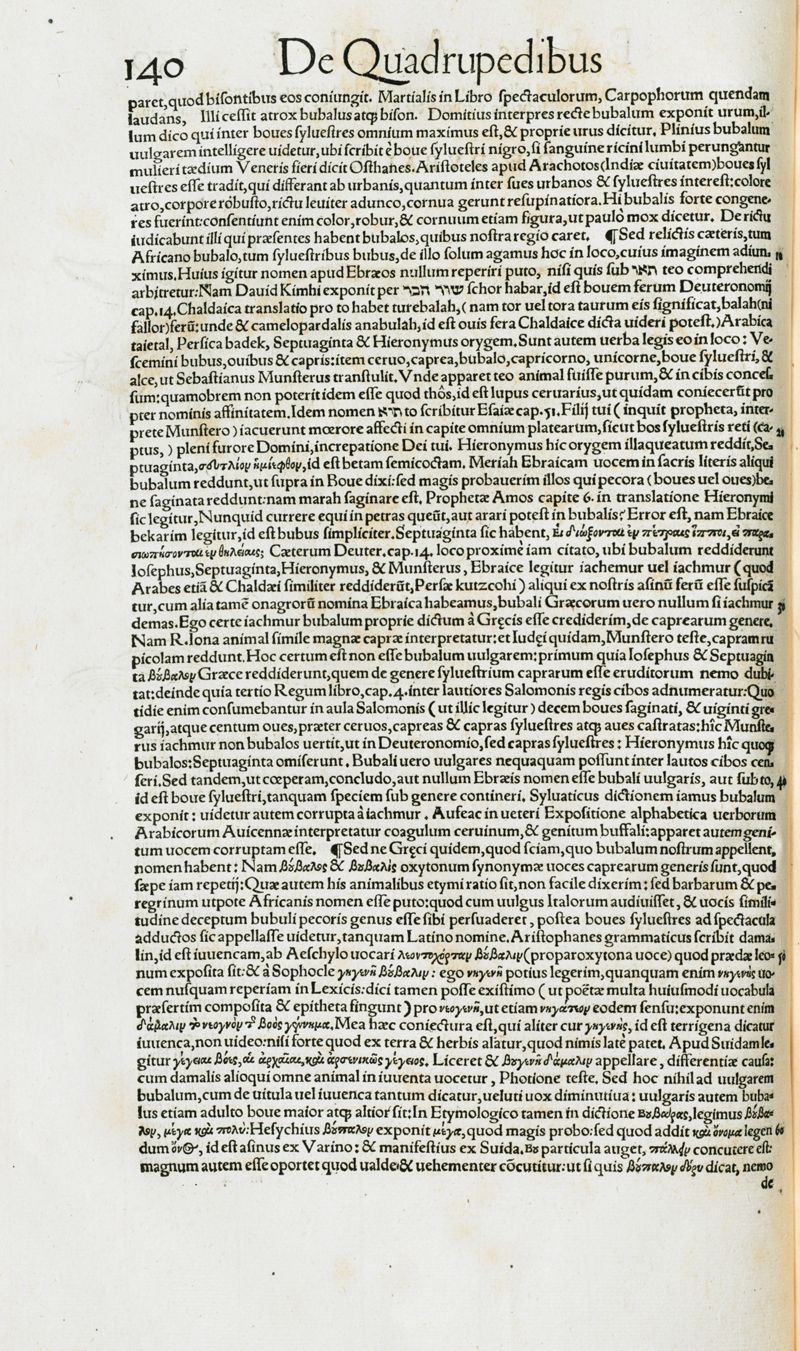 140 De Quadrupedibus
paret, quod bisontibus eos coniungit. Martialis in Libro spectaculorum, Carpophorum quendam
laudans, Illi cessit atrox bubalus atq; bison. Domitius interpres recte bubalum exponit urum, il-
lum dico qui inter boues syluestres omnium maximus est, & proprie urus dicitur. Plinius bubalum
uulgarem intelligere uidetur, ubi scribit è boue syluestri nigro, si sanguine ricini lumbi perungantur
mulieri tædium Veneris fieri dicit Osthanes. Aristoteles apud Arachotos (Indiæ ciuitatem) boues syl
uestres esse tradit, qui differant ab urbanis, quantum inter sues urbanos & syluestres interest: colore
atro, corpore robusto, rictu leuiter adunco, cornua gerunt resupinatiora. Hi bubalis forte congene-
res fuerint: consentiunt enim color, robur, & cornuum etiam figura, ut paulò mox dicetur. De rictu
iudicabunt illi qui præsentes habent bubalos, quibus nostra regio caret. ¶ Sed relictis cæteris, tum
Africano bubalo, tum syluestribus bubus, de illo solum agamus hoc in loco, cuius imaginem adiun- 10
ximus. Huius igitur nomen apud Ebræos nullum reperiri puto, nisi quis sub תאו teo comprehendi
arbitretur: Nam Dauid Kimhi exponit per שור הבר schor habar, id est bouem ferum Deuteronomij
cap. 14. Chaldaica translatio pro to habet turebalah, (nam tor uel tora taurum eis significat, balah (ni
fallor) ferũ: unde & camelopardalis anabulah, id est ouis fera Chaldaice dicta uideri potest.) Arabica
taietal, Persica badek, Septuaginta & Hieronymus orygem. Sunt autem uerba legis eo in loco: Ve-
scemini bubus, ouibus & capris: item ceruo, caprea, bubalo, capricorno, unicorne, boue syluestri, &
alce, ut Sebastianus Munsterus transtulit. Vnde apparet teo animal fuisse purum, & in cibis conces-
sum: quamobrem non poterit idem esse quod thôs, id est lupus ceruarius, ut quidam coniecerũt pro
pter nominis affinitatem. Idem nomen תוא to scribitur Esaiæ cap. 51. Filij tui (inquit propheta, inter-
prete Munstero) iacuerunt mœrore affecti in capite omnium platearum, sicut bos syluestris reti (ca- 20
ptus,) pleni furore Domini, increpatione Dei tui. Hieronymus hic orygem illaqueatum reddit, Se-
ptuaginta, σευτλίον ἡμίεφθον, id est betam semicoctam. Meriah Ebraicam uocem in sacris literis aliqui
bubalum reddunt, ut supra in Boue dixi: sed magis probauerim illos qui pecora (boues uel oues) be-
ne saginata reddunt: nam marah saginare est. Prophetæ Amos capite 6. in translatione Hieronymi
sic legitur, Nunquid currere equi in petras queũt, aut arari potest in bubalis? Error est, nam Ebraice
bekarim legitur, id est bubus simpliciter. Septuaginta sic habent, Εἰ διώξονται ἐν πέτραις ἵπποι, εἰ παρα-
σιωπήσονται ἐν θηλείαις; Cæterum Deuter. cap. 14. loco proximè iam citato, ubi bubalum reddiderunt
Iosephus, Septuaginta, Hieronymus, & Munsterus, Ebraice legitur iachemur uel iachmur (quod
Arabes etiã & Chaldæi similiter reddiderũt, Persæ kutzcohi) aliqui ex nostris asinũ ferũ esse suspicã
tur, cum alia tamẽ onagrorũ nomina Ebraica habeamus, bubali Græcorum uero nullum si iachmur 30
demas. Ego certe iachmur bubalum proprie dictum à Gręcis esse crediderim, de caprearum genere.
Nam R. Iona animal simile magnæ capræ interpretatur: et Iudęi quidam, Munstero teste, capram ru
picolam reddunt. Hoc certum est non esse bubalum uulgarem: primum quia Iosephus & Septuagin
ta βούβαλον Græce reddiderunt, quem de genere syluestrium caprarum esse eruditorum nemo dubi-
tat: deinde quia tertio Regum libro, cap. 4. inter lautiores Salomonis regis cibos adnumeratur: Quo
tidie enim consumebantur in aula Salomonis (ut illic legitur) decem boues saginati, & uiginti gre-
garij, atque centum oues, præter ceruos, capreas & capras syluestres atq; aues castratas: hîc Munste-
rus iachmur non bubalos uertit, ut in Deuteronomio, sed capras syluestres: Hieronymus hîc quoq;
bubalos: Septuaginta omiserunt. Bubali uero uulgares nequaquam possunt inter lautos cibos cen-
seri. Sed tandem, ut cœperam, concludo, aut nullum Ebræis nomen esse bubali uulgaris, aut sub to, 40
id est boue syluestri, tanquam speciem sub genere contineri. Syluaticus dictionem iamus bubalum
exponit: uidetur autem corrupta à iachmur. Aufeac in ueteri Expositione alphabetica uerborum
Arabicorum Auicennæ interpretatur coagulum ceruinum, & genitum buffali: apparet autem geni-
tum uocem corruptam esse. ¶ Sed ne Gręci quidem, quod sciam, quo bubalum nostrum appellent,
nomen habent: Nam βούβαλος & βουβαλὶς oxytonum synonymæ uoces caprearum generis sunt, quod
sæpe iam repetij: Quæ autem his animalibus etymi ratio sit, non facile dixerim: sed barbarum & pe-
regrinum utpote Africanis nomen esse puto: quod cum uulgus Italorum audiuisset, & uocis simili-
tudine deceptum bubuli pecoris genus esse sibi persuaderet, postea boues syluestres ad spectacula
adductos sic appellasse uidetur, tanquam Latino nomine. Aristophanes grammaticus scribit dama-
lin, id est iuuencam, ab Aeschylo uocari λεοντοχόρταν βούβαλιν (proparoxytona uoce) quod prædæ leo- 50
num exposita sit: & à Sophocle γηγενῆ βούβαλιν: ego νηγενῆ potius legerim, quanquam enim νηγενὴς uo-
cem nusquam reperiam in Lexicis: dici tamen posse existimo (ut poëtæ multa huiusmodi uocabula
præsertim composita & epitheta fingunt) pro νεογενῆ, ut etiam νηγάτεον eodem sensu: exponunt enim
δάμαλιν τὸ νεογνὸν τῆς βοὸς γέννημα. Mea hæc coniectura est, qui aliter cur γηγενὴς, id est terrigena dicatur
iuuenca, non uideo: nisi forte quod ex terra & herbis alatur, quod nimis latè patet. Apud Suidam le-
gitur γέγειαι βόες, αἱ ἀρχαῖαι, καὶ ἀρσενικῶς γέγειος. Liceret & βουγενῆ δάμαλιν appellare, differentiæ causa:
cum damalis alioqui omne animal in iuuenta uocetur, Photione teste. Sed hoc nihil ad uulgarem
bubalum, cum de uitula uel iuuenca tantum dicatur, ueluti uox diminutiua: uulgaris autem buba-
lus etiam adulto boue maior atq; altior sit: In Etymologico tamen in dictione Βουβάρας, legimus βούβα-
λον, μέγα καὶ πολύ: Hesychius βούπαλον exponit μέγα, quod magis probo: sed quod addit καὶ ὄνομα legen 60
dum ὄνος, id est asinus ex Varino: & manifestius ex Suida. Βου particula auget, πάλλειν concutere est:
magnum autem esse oportet quod ualde & uehementer cõcutitur: ut si quis βούπαλον δόρυ dicat, nemo
de